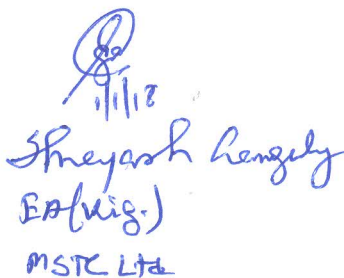 1/1/18
Shreyash Ganguly
EA(Vig.)
MSTC Ltd